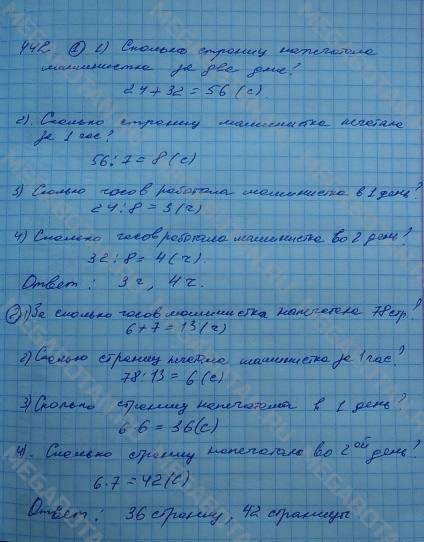 442. 1) 1) Сколько страниц напечатала
машинистка за два дня?
24 + 32 = 56 (с)
2). Сколько страниц машинистка печатала
за 1 час?
56 : 7 = 8 (с)
3) Сколько часов работала машинистка в 1 день?
24 : 8 = 3 (ч)
4) Сколько часов работала машинистка во 2 день?
32 : 8 = 4 (ч).
Ответ: 3ч, 4ч.
2) 1) За сколько часов машинистка напечатала 78 стр.?
6 + 7 = 13 (ч)
2) Сколько страниц печатала машинистка за 1 час?
78 : 13 = 6 (с)
3) Сколько страниц напечатала в 1 день?
6 · 6 = 36 (с)
4). Сколько страниц напечатала во 2ой день?
6 · 7 = 42 (с)
Ответ: 36 страниц, 42 страницы.